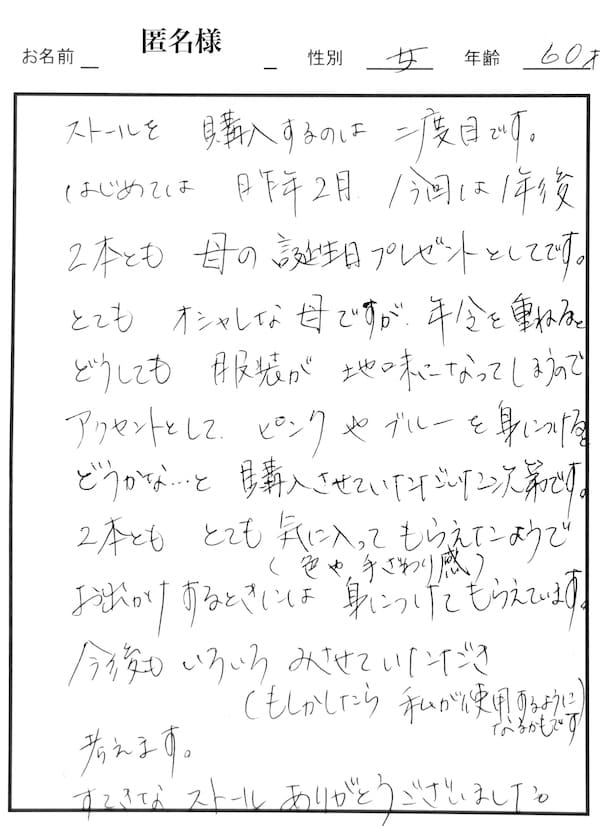 お名前 匿名様 性別 女 年齢 60才
ストールを 購入するのは 二度目です。
はじめては 昨年2月. 今回は1年後
2本とも 母の誕生日プレゼントとしてです。
とても オシャレな母ですが、年令を重ねると
どうしても 服装が 地味になってしまうので
アクセントとして、ピンクやブルーを身につけると
どうかな…と 購入させていただいた次第です。
2本とも とても気に入ってもらえたようで
(色や、手ざわり感)
お出かけするときには 身につけてもらえています。
今後も いろいろ みさせていただき
(もしかしたら 私が使用するように
なるかもです)
考えます。
すてきな ストール ありがとうございました。